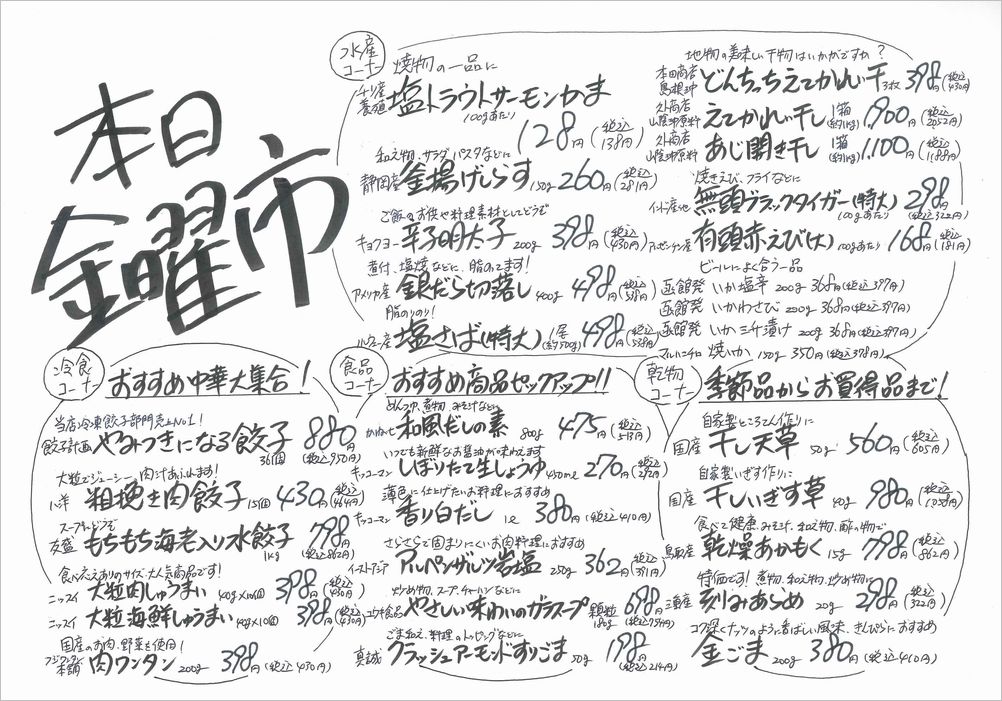 本日
金曜市
水産
コーナー
焼物の一品に
チリ産
養殖 塩トラウトサーモンかま
100gあたり
128円(税込138円)
和え物、サラダ、パスタなどに
静岡産 釜揚げしらす 150g 260円(税込281円)
ご飯のお供や料理素材としてどうぞ
キョクヨー 辛子明太子 200g 398円(税込430円)
煮付、塩焼などに、脂のってます!
アメリカ産 銀だら切落し 400g 498円(税込538円)
脂のりのり!
ノルウェー産 塩さば(特大) 1尾(約500g) 498円(税込538円)
地物の美味しい干物はいかがですか?
本田商店
島根沖 どんちっちえてかれい干 3枚 398円(税込430円)
山陰沖原料 えてかれい干し 1箱(約1kg) 1,900円(税込2052円)
山陰沖原料 あじ開き干し 1箱(約1kg) 1,100円(税込1188円)
焼きえび、フライなどに
インド産他 無頭ブラックタイガー(特大) 100gあたり 298円(税込322円)
アルゼンチン産 有頭赤えび(大) 100gあたり 168円(税込181円)
ビールによく合う一品
函館発 いか塩辛 200g 368円(税込397円)
函館発 いかわさび 200g 368円(税込397円)
函館発 いか三升漬け 200g 368円(税込397円)
マルハニチロ 焼いか 150g 350円(税込378円)
冷食
コーナー
おすすめ中華大集合!
当店冷凍餃子部門売上No.1!
餃子計画 やみつきになる餃子 36個 880円(税込950円)
大粒でジューシー、肉汁あふれます!
八洋 粗挽き肉餃子 15個 430円(税込464円)
スープ等にどうぞ
友盛 もちもち海老入り水餃子 1kg 798円(税込862円)
食べ応えありのサイズ、大人気商品です!
ニッスイ 大粒肉しゅうまい 40g×10個 398円(税込430円)
ニッスイ 大粒海鮮しゅうまい 40g×10個 398円(税込430円)
国産のお肉、野菜を使用!
本舗 肉ワンタン 200g 398円(税込430円)
食品
コーナー
おすすめ商品ピックアップ!!
めんつゆ、煮物、みそ汁などに
かねせ 和風だしの素 800g 475円(税込513円)
いつでも新鮮なお醤油が味わえます
キッコーマン しぼりたて生しょうゆ 450ml 270円(税込292円)
薄色に仕上げたいお料理におすすめ
キッコーマン 香り白だし 1ℓ 380円(税込410円)
さらさらで固まりにくいお肉料理におすすめ
イーストアジア アルペンザルツ岩塩 250g 362円(税込391円)
炒め物、スープ、チャーハンなどに
ユウキ食品 やさしい味わいのガラスープ 顆粒 180g 698円(税込754円)
ごま和え、料理のトッピングなどに
真誠 クラッシュアーモンドすりごま 50g 198円(税込214円)
乾物
コーナー
季節品からお買得品まで!
自家製ところてん作りに
国産 干し天草 50g 560円(税込605円)
自家製いぎす作りに
国産 干しいぎす草 40g 980円(税込1,058円)
食べて健康、みそ汁、和え物、酢の物で
鳥取産 乾燥あかもく 15g 798円(税込862円)
特価です!煮物、和え物、炒め物に
三重産 刻みあらめ 20g 298円(税込322円)
コク深くナッツのように香ばしい風味、きんぴらにおすすめ
金ごま 200g 380円(税込410円)